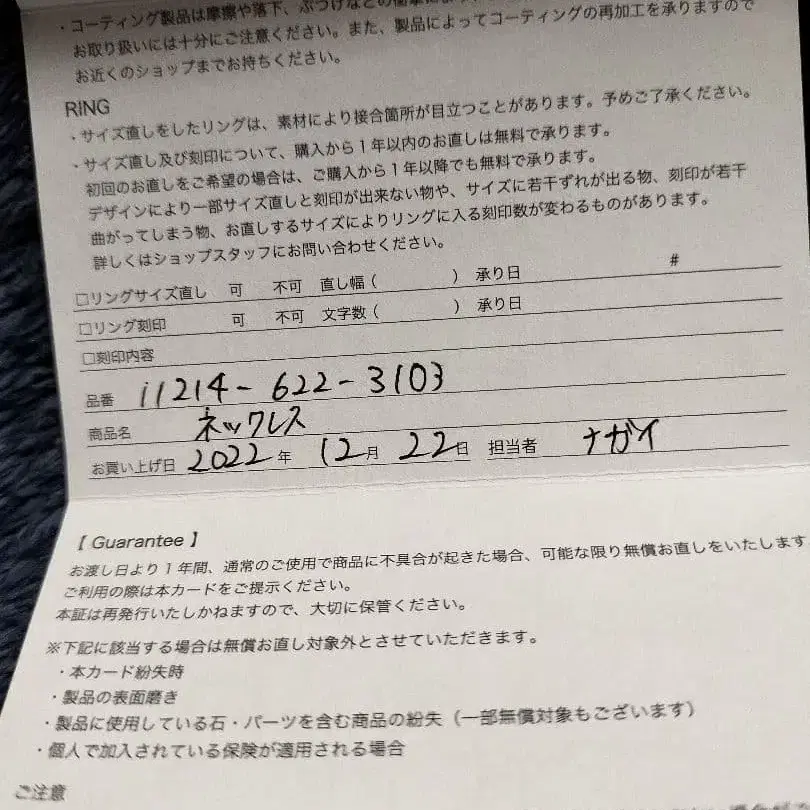 ・コーティング製品は摩擦や落下、ぶつけなどの
お取り扱いには十分にご注意ください。また、製品によってコーティングの再加工を承りますので
お近くのショップまでお持ちください。
RING
・サイズ直しをしたリングは、素材により接合箇所が目立つことがあります。予めご了承ください。
・サイズ直し及び刻印について、購入から1年以内のお直しは無料で承ります。
初回のお直しをご希望の場合は、ご購入から1年以降でも無料で承ります。
デザインにより一部サイズ直しと刻印が出来ない物や、サイズに若干ずれが出る物、刻印が若干
曲がってしまう物、お直しするサイズによりリングに入る刻印数が変わるものがあります。
詳しくはショップスタッフにお問い合わせください。
#
□リングサイズ直し 可 不可 直し幅 ( ) 承り日
□リング刻印 可 不可 文字数 ( ) 承り日
□刻印内容
品番 11214-622-3103
商品名 ネックレス
お買い上げ日 2022年 12月 22日 担当者 ナガイ
【 Guarantee 】
お渡し日より1年間、通常のご使用で商品に不具合が起きた場合、可能な限り無償お直しをいたします
ご利用の際は本カードをご提示ください。
本証は再発行いたしかねますので、大切に保管ください。
※下記に該当する場合は無償お直し対象外とさせていただきます。
・本カード紛失時
・製品の表面磨き
・製品に使用している石・パーツを含む商品の紛失（一部無償対象もございます）
・個人で加入されている保険が適用される場合
ご注意